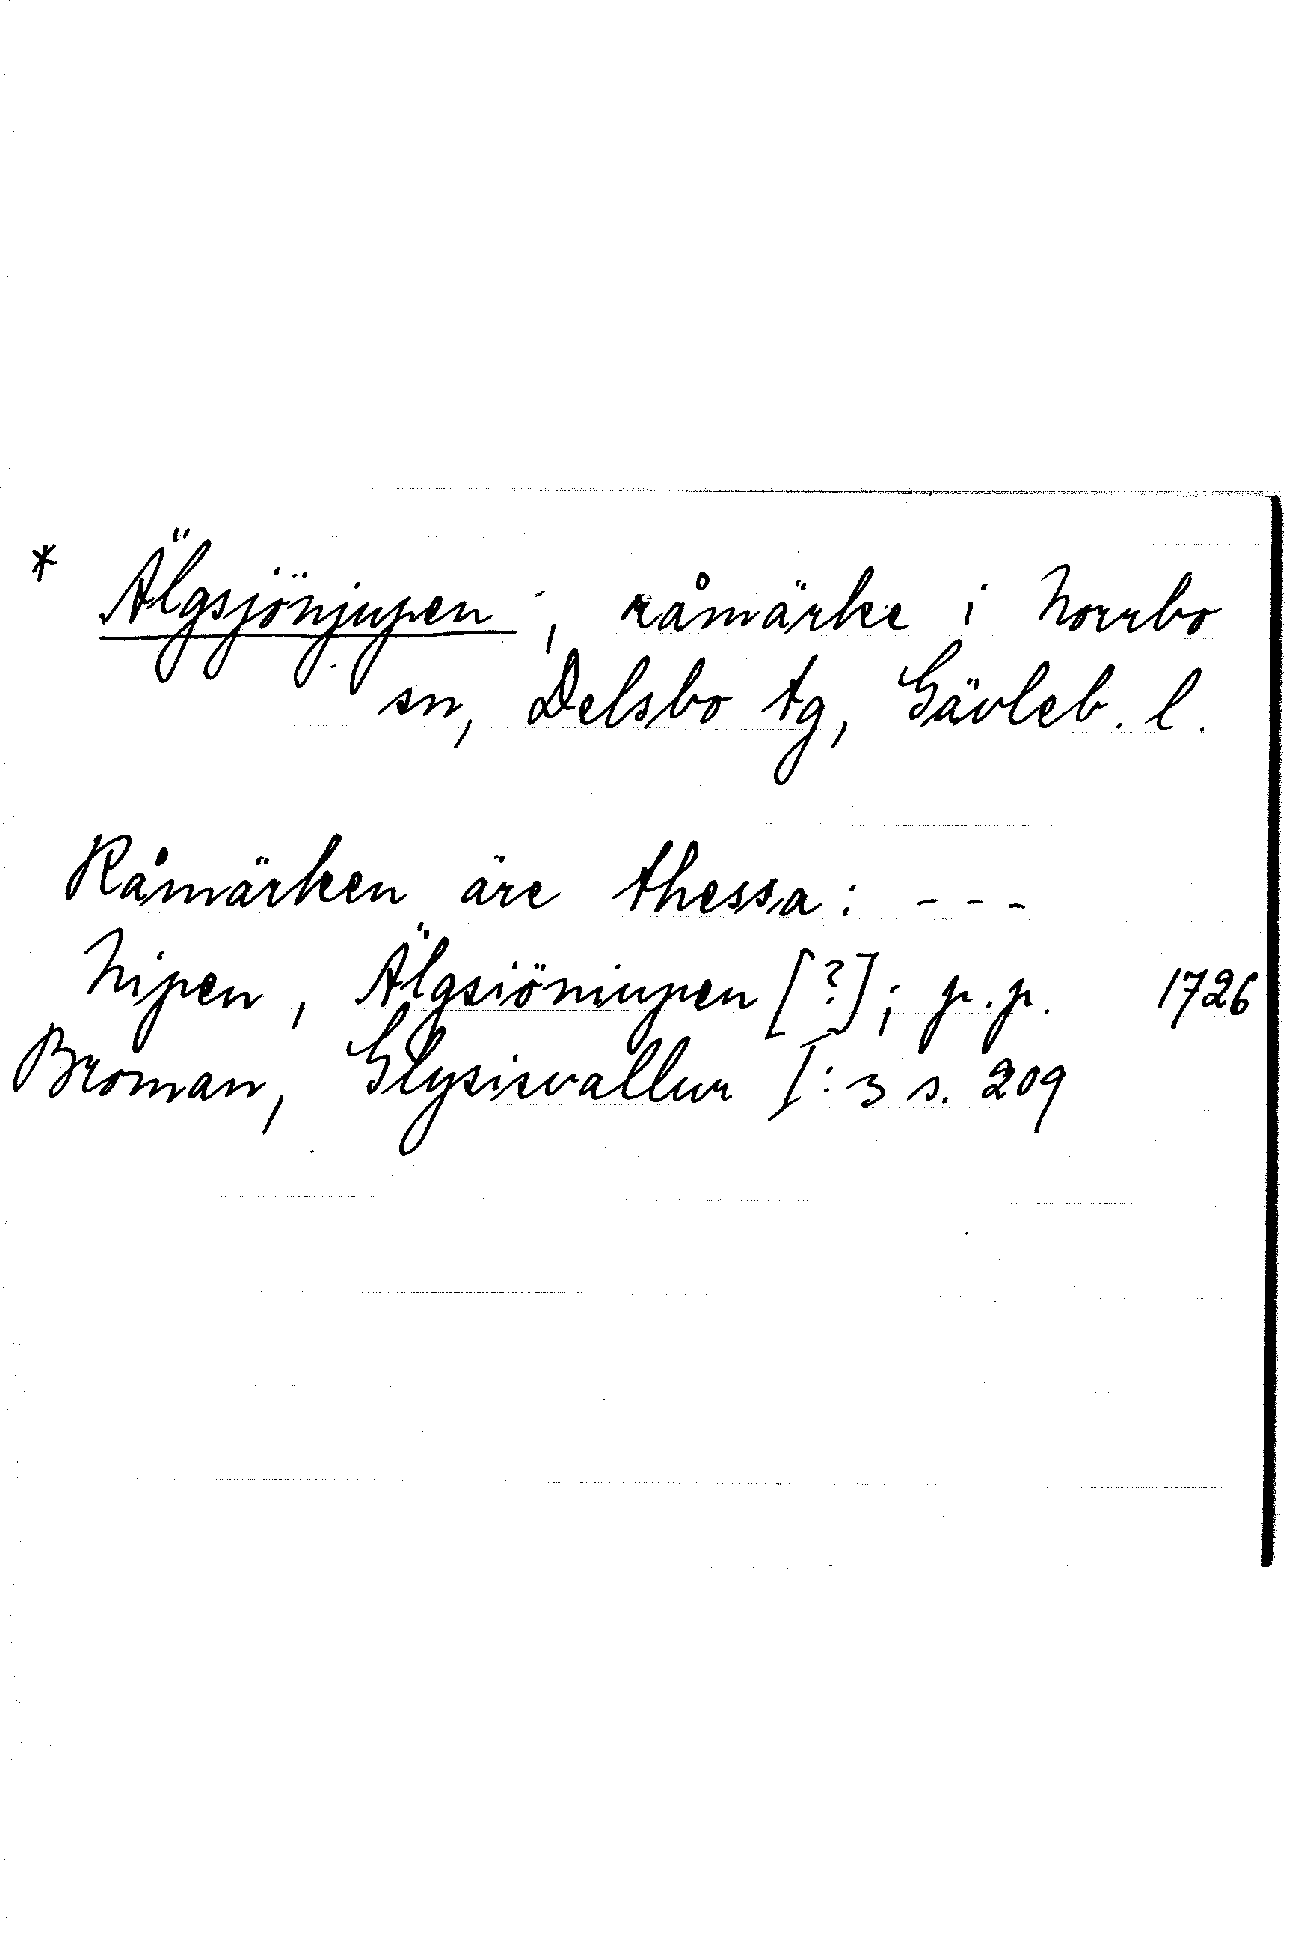 * Älgsjönjupen, råmärke i Norrbo
sn, Delsbo tg, Gävleb. l.
Råmärken äre thessa: - - -
Nipen, Älgsiöniupen [?]; p.p. 1726
Broman, Glysisvallur I:3 s. 209